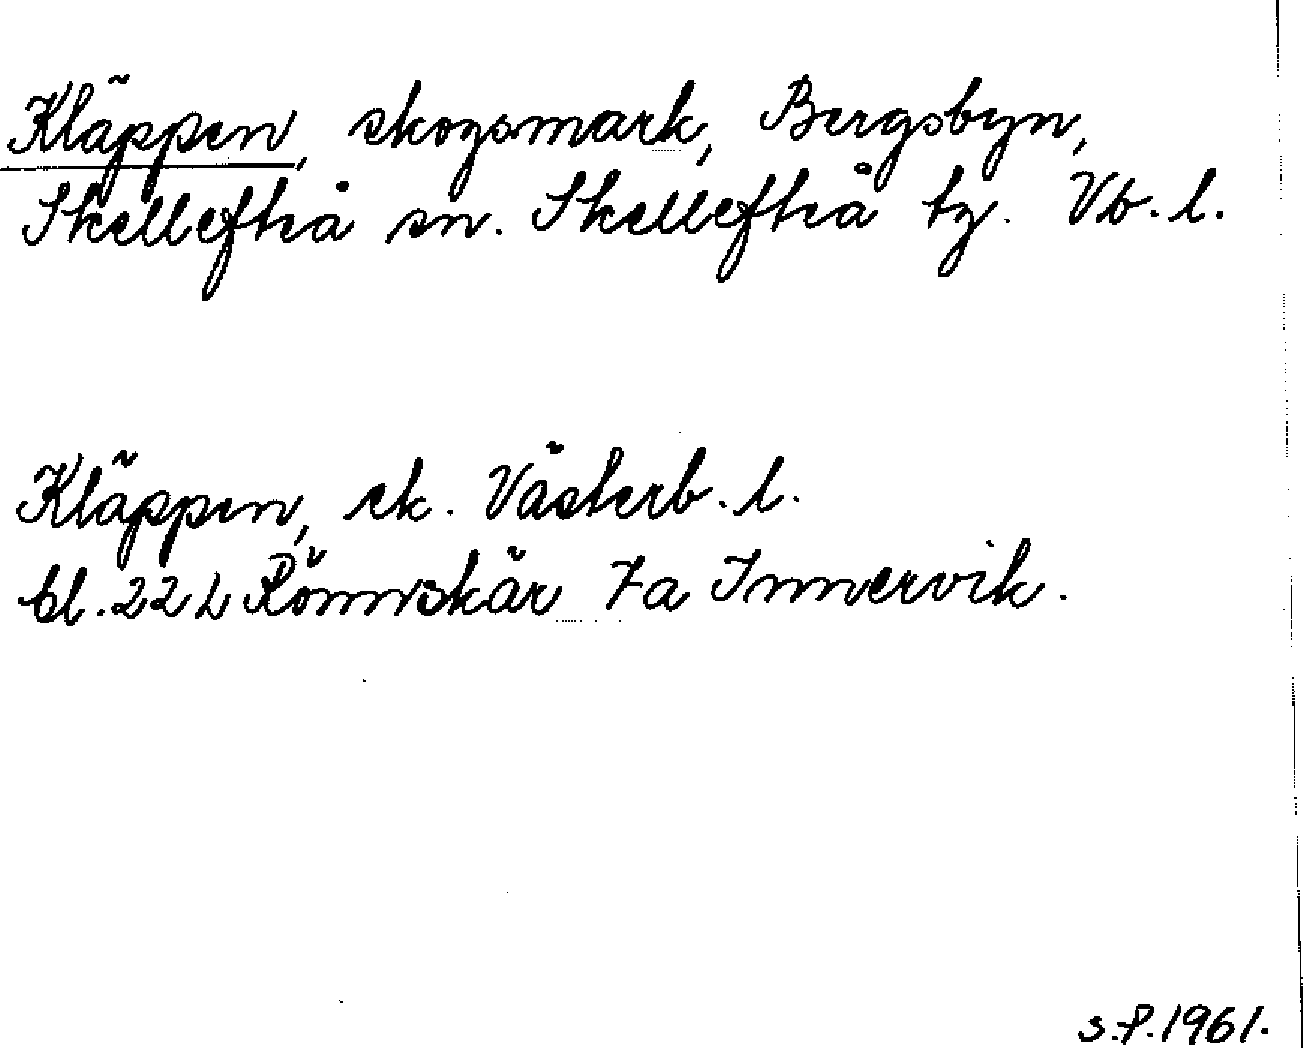 Kläppen, skogsmark, Bergsbyn,
Skellefteå sn. Skellefteå tg. Vb. l.
Kläppen, ek. Västerb. l.
bl. 22 L Rönnskär 7a Innervik.
s.f. 1961.